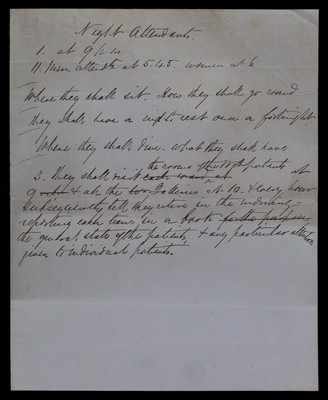 Night Attendants
1. at 9 h. m
11. Men attendts at 5.45. women at 6.
Where they shall sit. How they shall go round
They shall have a nights rest once a fortnight.
Where they shall dine. what they shall have.
the rooms of the patients at
3. They shall visit each ward, at
9 & all the Galleries at 10. & every hour
subsequently till they retire in the morning
reporting each time in a book
the general state of the patients, & any particular attention
given to individual patients.